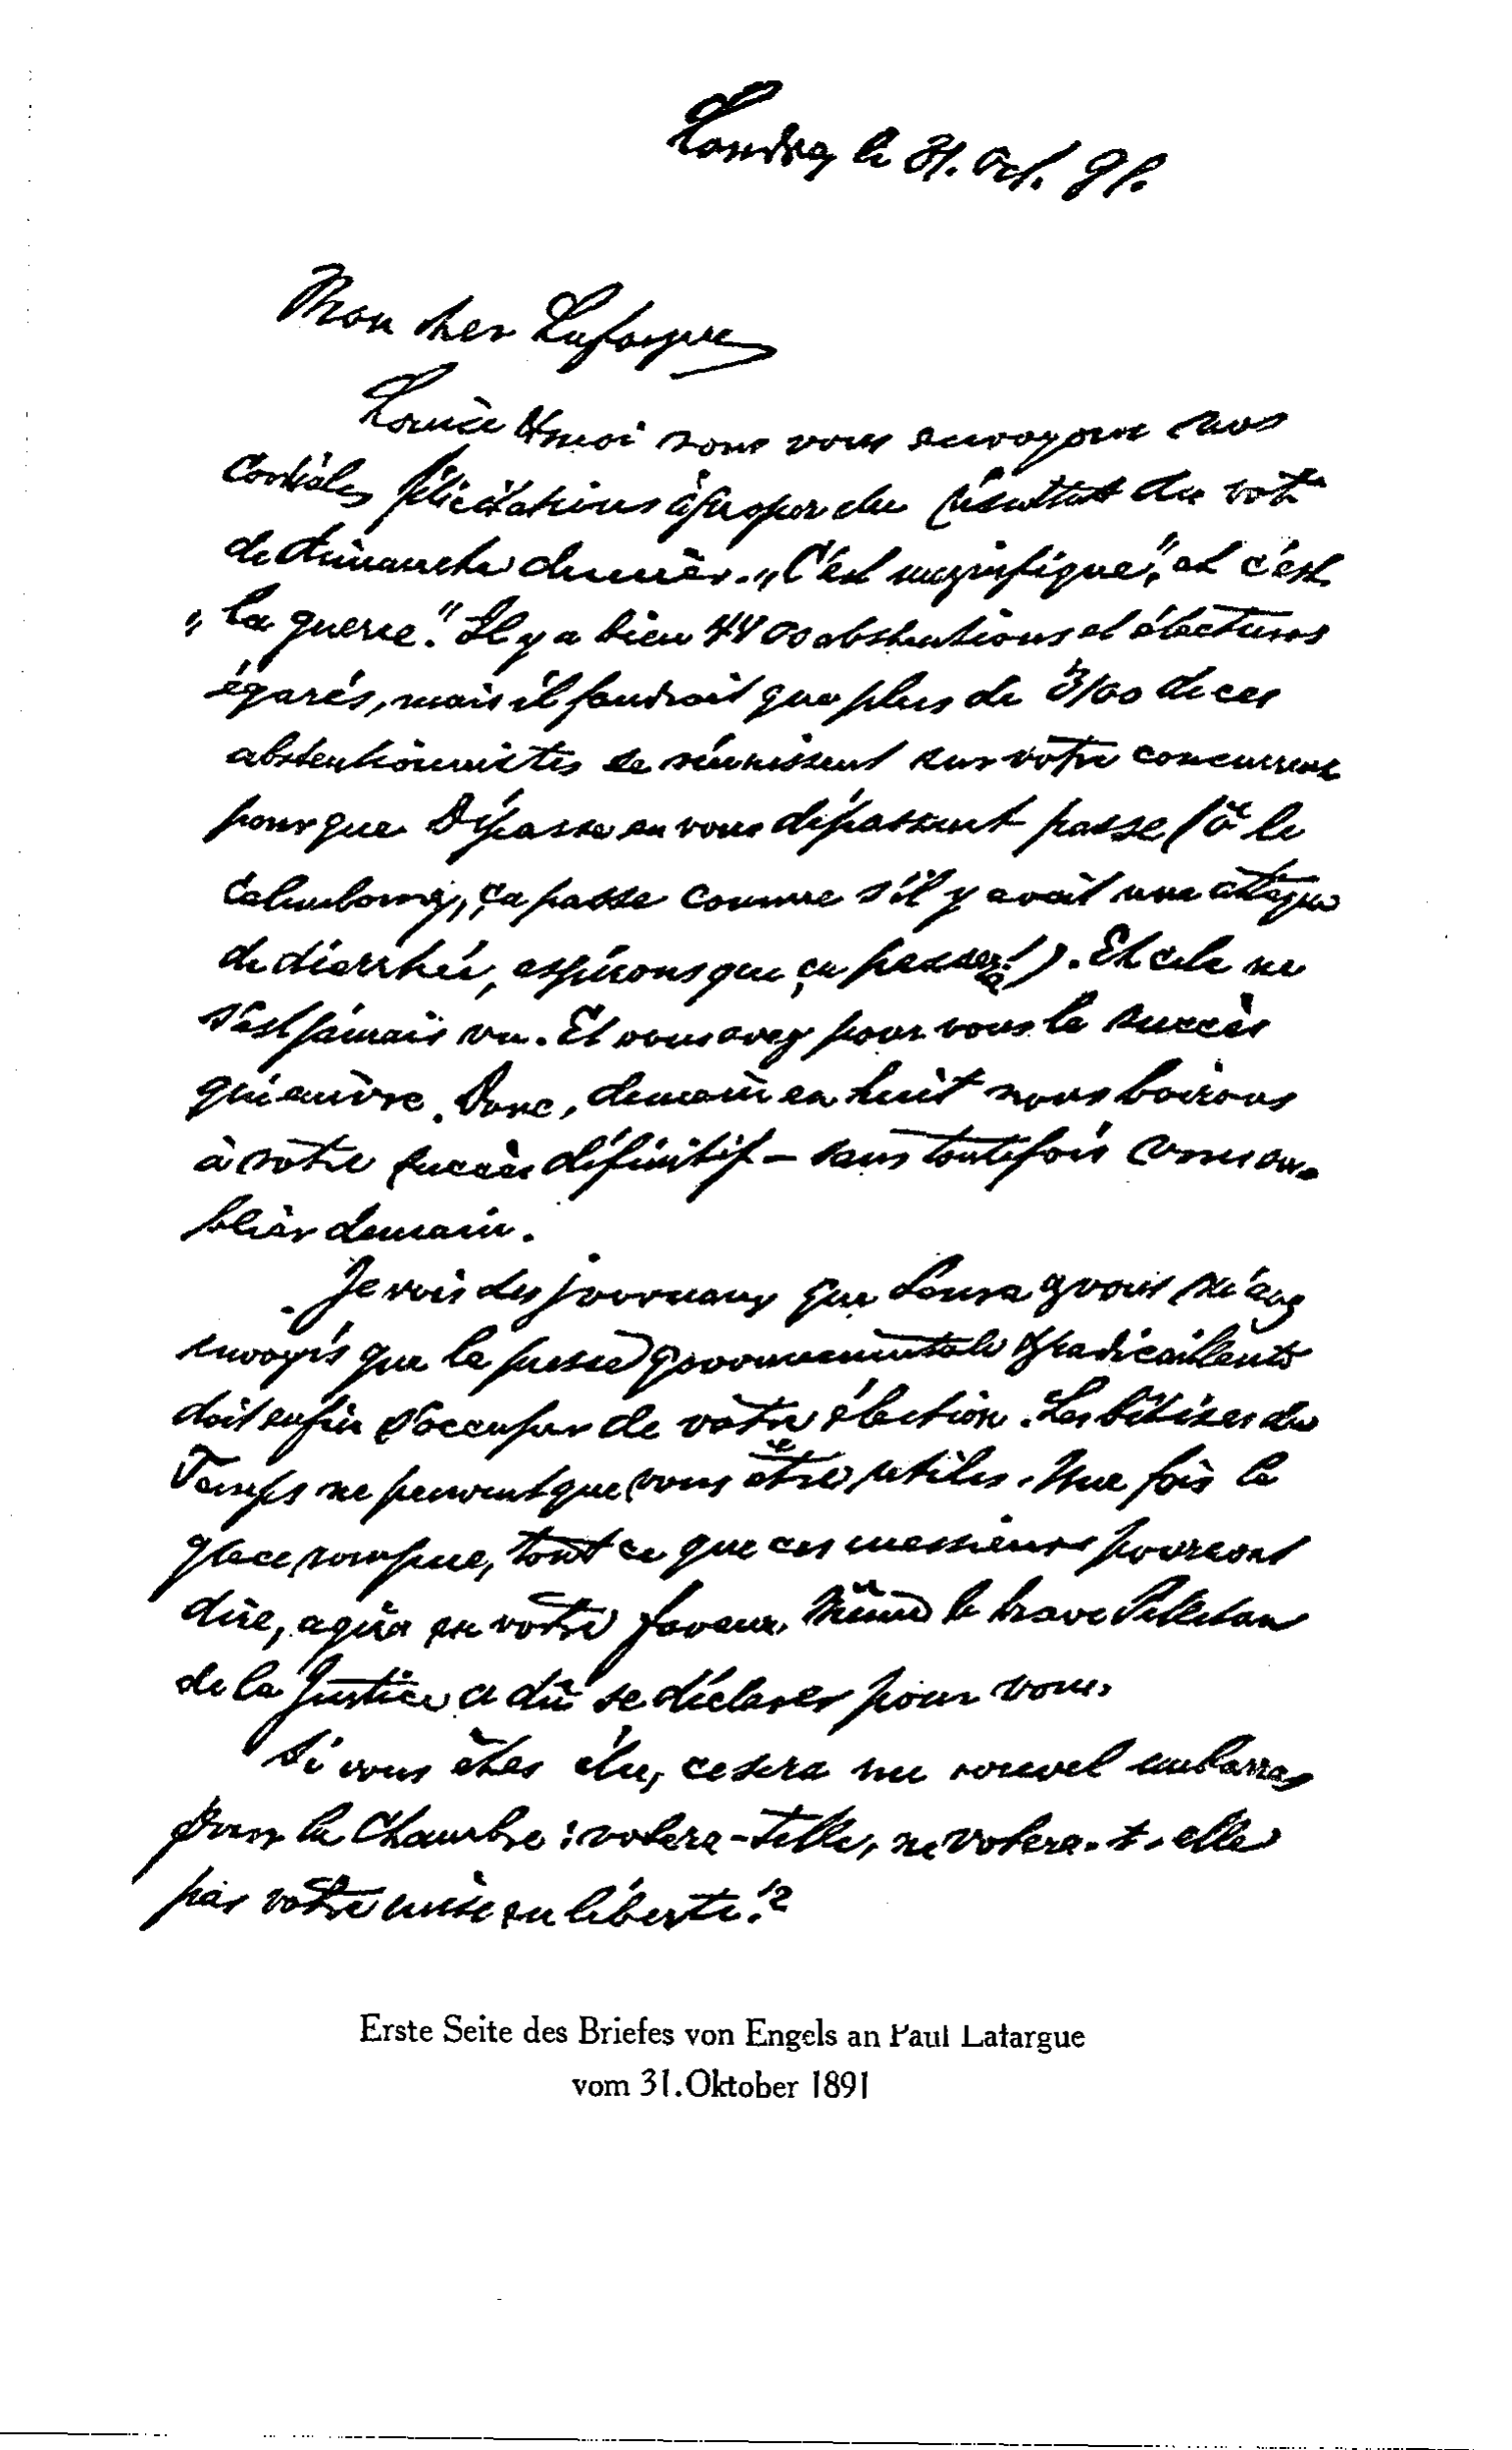 Londres le 31. Oct. 91.
Mon cher Lafargue
Louise & moi nous vous envoyons nos
cordiales félicitations à propos du résultat du vote
de dimanche dernier. „C'est magnifique", et c'est
„la guerre". Il y a bien 4400 abstentions et électeurs
égarés, mais il faudrait que plus de 3/00 de ces
abstentionnistes se réunissent sur votre concurrent
pour que Dépasse en vous dépassant passe (ô le
calembourg, ça passe comme s'il y avait une attaque
de diarrhée, espérons que ça passera!). Et cela ne
s'est jamais vu. Et vous avez pour vous le succès
qui enivre. Donc, demain en huit nous boirons
à votre succès définitif – sans toutefois vous ou-
blier demain.
Je vois des journaux que Laura & vous m'avez
envoyés que la presse gouvernementale & radicaillante
doit enfin s'occuper de votre élection. Les bêtises du
Temps ne peuvent que vous être utiles. Une fois la
glace rompue, tout ce que ces messieurs pourront
dire, agira en votre faveur. Même le brave Pelletan
de la Justice a dû se déclarer pour vous.
Si vous êtes élu, ce sera un nouvel embarras
pour la Chambre: votera-t-elle, ne votera-t-elle
pas votre mise en liberté!?
Erste Seite des Briefes von Engels an Paul Lafargue
vom 31. Oktober 1891